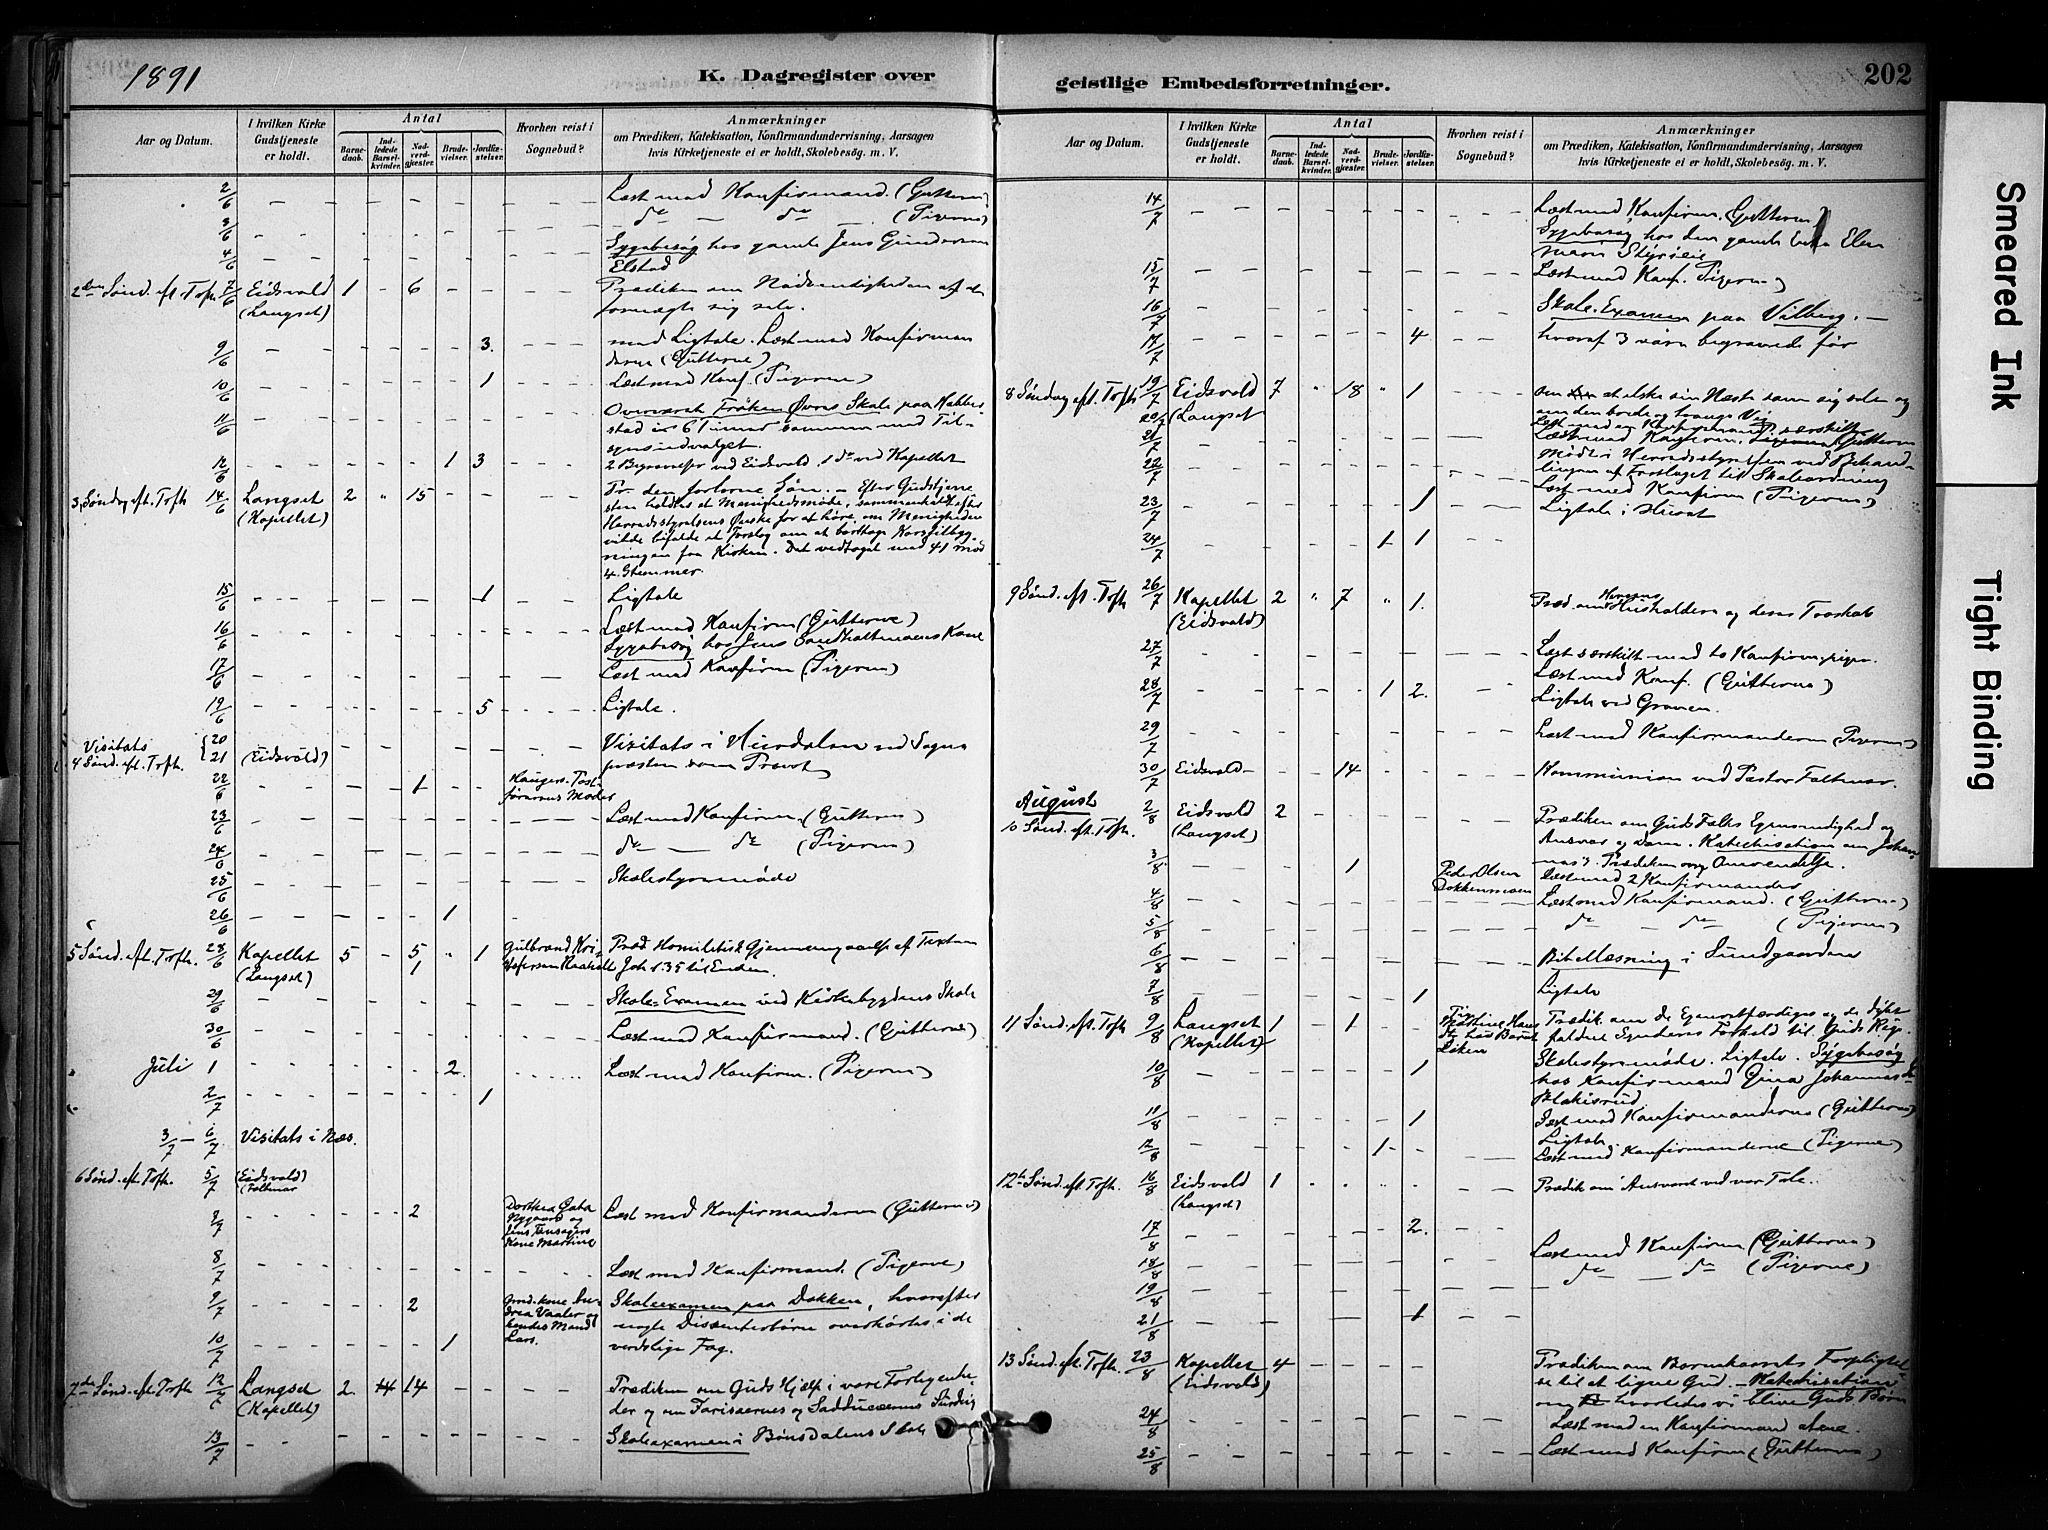 1891
K. Dagregister over
Aar og Datum.
I hvilken Kirke Gudstjeneste er holdt.
Antal
Barnedaab.
Indledede Barselkvinder.
Nadverdgjester.
Brudevielser.
Jordfæstelser.
Hvorhen reist i Sognebud?
Anmærkninger
om Prædiken, Katekisation, Konfirmandundervisning, Aarsagen
hvis Kirketjeneste ei er holdt, Skolebesög. m. V.
2/6 Læst med Konfirmand. (Gutterne)
3/6 do — do (Pigerne)
4/6 Sygebesøg hos gamle Jens Gundersen
Elstad
2den Sønd. eft. Trefh. 7/6 Eidsvold 1 - 6 Prædiken om Nødvendigheden af at
(Langset) fornægte sig selv.
9/6 3. med Ligtale. Læst med Konfirman
derne (Gutterne)
10/6 1 Læst med Konf. (Pigerne)
11/6 Overværet Frøken Øvres Skole paa
stad i 6 Timer sammen med Til-
synsudvalget.
12/6 1 3 2 Begravelser ved Eidsvold, 1 do ved Kapellet
3 Søndag eft. Trefh 14/6 Langset 2 " 15 Pr. den forlorne Søn. — Efter Gudstjene
(Kapellet) sten holdtes et Menighedsmøde, sammenkaldt efter
Herredsstyrelsens Ønske for at høre om Menigheden
vilde bifalde et Forslag om at borttage Korstilbyg-
ningen fra Kirken. Det vedtoges med 41 mod
4 Stemmer.
15/6 1 Ligtale
16/6 Læst med Konfirm (Gutterne)
Sygebesøg hos Jens Kone
17/6 Læst med Konfirm (Pigerne)
19/6 5 Ligtale.
Visitats {20 Visitats i Hurdalen ved Sogne
4 Sønd. eft. Trefh. 21 (Eidsvold) præsten som Provst
22/6 1 Moder
23/6 Læst med Konfirm. (Gutterne)
24/6 do — do (Pigerne)
25/6 Skolestyremøde
26/6 1
5 Sønd. eft. Trefh. 28/6 Kapellet 5 - 5 " 1 Gulbrand Kri Præd Homiletisk Gjennemgaaelse af Texten
(Langset) 1 Joh 1.35 til Enden.
29/6 Skole-Examen ved Kirkebygdens Skole
30/6 Læst med Konfirmand. (Gutterne)
Juli 1 2. Læst med Konfirm. (Pigerne)
2/7 1
3/7 — 6/7 Visitats i Næs.
6 Sønd. eft. Trefh. 5/7 (Eidsvold)
(Faltmar
8/7 2 Dorthea Læst med Konfirmanderne (Gutterne)
Nygaard og
Jens
Kone Martine
8/7 Læst med Konfirmand. (Pigerne)
9/7 2 Skoleexamen paa Dokken, hvorefter
drea Vaaler og nogle Dissenterbørn overhørtes i de
hendes Mand
10/7 1 Lars. verdslige Fag.
7de Sønd. eft. Trefh 12/7 Langset 2. 14 14 Prædiken om Guds Hjælp i vore Forlegenhe-
(Kapellet) der og om Farisæernes og Sadducæernes Surdeig
13/7 Skoleexamen i Bønsdalens Skole
geistlige Embedsforretninger.
202
Aar og Datum.
I hvilken Kirke Gudstjeneste er holdt.
Antal
Barnedaab.
Indledede Barselkvinder.
Nadverdgjester.
Brudevielser.
Jordfæstelser.
Hvorhen reist i Sognebud?
Anmærkninger
om Prædiken, Katekisation, Konfirmandundervisning, Aarsagen
hvis Kirketjeneste ei er holdt, Skolebesög. m. V.
14/7 Læst med Konfirm. (Gutterne)
Sygebesøg hos den gamle Enke Elen
Marie
15/7 Læst med Konf. Pigerne)
16/7 Skole-Examen paa Vilberg. —
17/7 4 hvoraf 3 vare begravede før
8 Søndag eft. Trefh 19/7 Eidsvold 7 " 18 " 1 om at elske sin Næste som sig selv og
20/7 (Langset om den brede og trange Vei
21/7 Læst med Konfirm. (Gutterne
22/7 Møde i Herredsstyrelsen ved Behand-
lingen af Forslaget til Skoleordning
23/7 1 Læst med Konfirm (Pigerne)
Ligtale i Huset
24/7 1 1
9 Sønd. eft. Trefh 26/7 Kapellet 2 " 7 " 1. Præd om Herrens Husholdere og deres Troskab
(Eidsvold)
27/7 Læst særskilt med to Konfirm.piger.
28/7 1 2. Læst med Konf. (Gutterne)
Ligtale ved Graven.
29/7 Læst med Konfirmanderne (Pigerne)
30/7 Eidsvold- 14 Kommunion ved Pastor Faltmar.
August 2/8 Eidsvold 2 Prædiken om Guds Folks og
10 Sønd. eft. Trefh. (Langset) Ansvar og Dom. Katechisation om Johan
3/8 1 Peder Olsen Læst med 2 Konfirmander
4/8 Læst med Konfirmand. (Gutterne)
5/8 do — do (Pigerne)
6/8 Bibellæsning i Sundgaarden
7/8 1 Ligtale
11 Sønd. eft. Trefh 9/8 Langset 1 - 1 Prædik. om de Egenretfærdiges og de dybt
(Kapellet) faldne Synderes Forhold til Guds Rige.
10/8 1 Skolestyremøde. Ligtale. Sygebesøg
hos Konfirmand Gina Johannesdr
11/8 1 Læst med Konfirmanderne (Gutterne)
Ligtale
12/8 1 Læst med Konfirmanderne (Pigerne)
12te Sønd. eft. Trefh. 16/8 Eidsvold 1 Prædik om Ansvaret ved vor Tale.
(Langset)
17/8 2.
18/8 Læst med Konfirm (Gutterne)
19/8 do — do (Pigerne)
21/8 1
13 Sønd. eft. Trefh. 23/8 Kapellet 4 Prædiken om Barnekaarets Forpligtel
(Eidsvold) se til at ligne Gud. — Katechisation
om hvorledes vi blive Guds Børn
24/8 Læst med en Konfirmand alene.
25/8 Læst med Konfirm (Gutterne)
Smeared Ink
Tight Binding